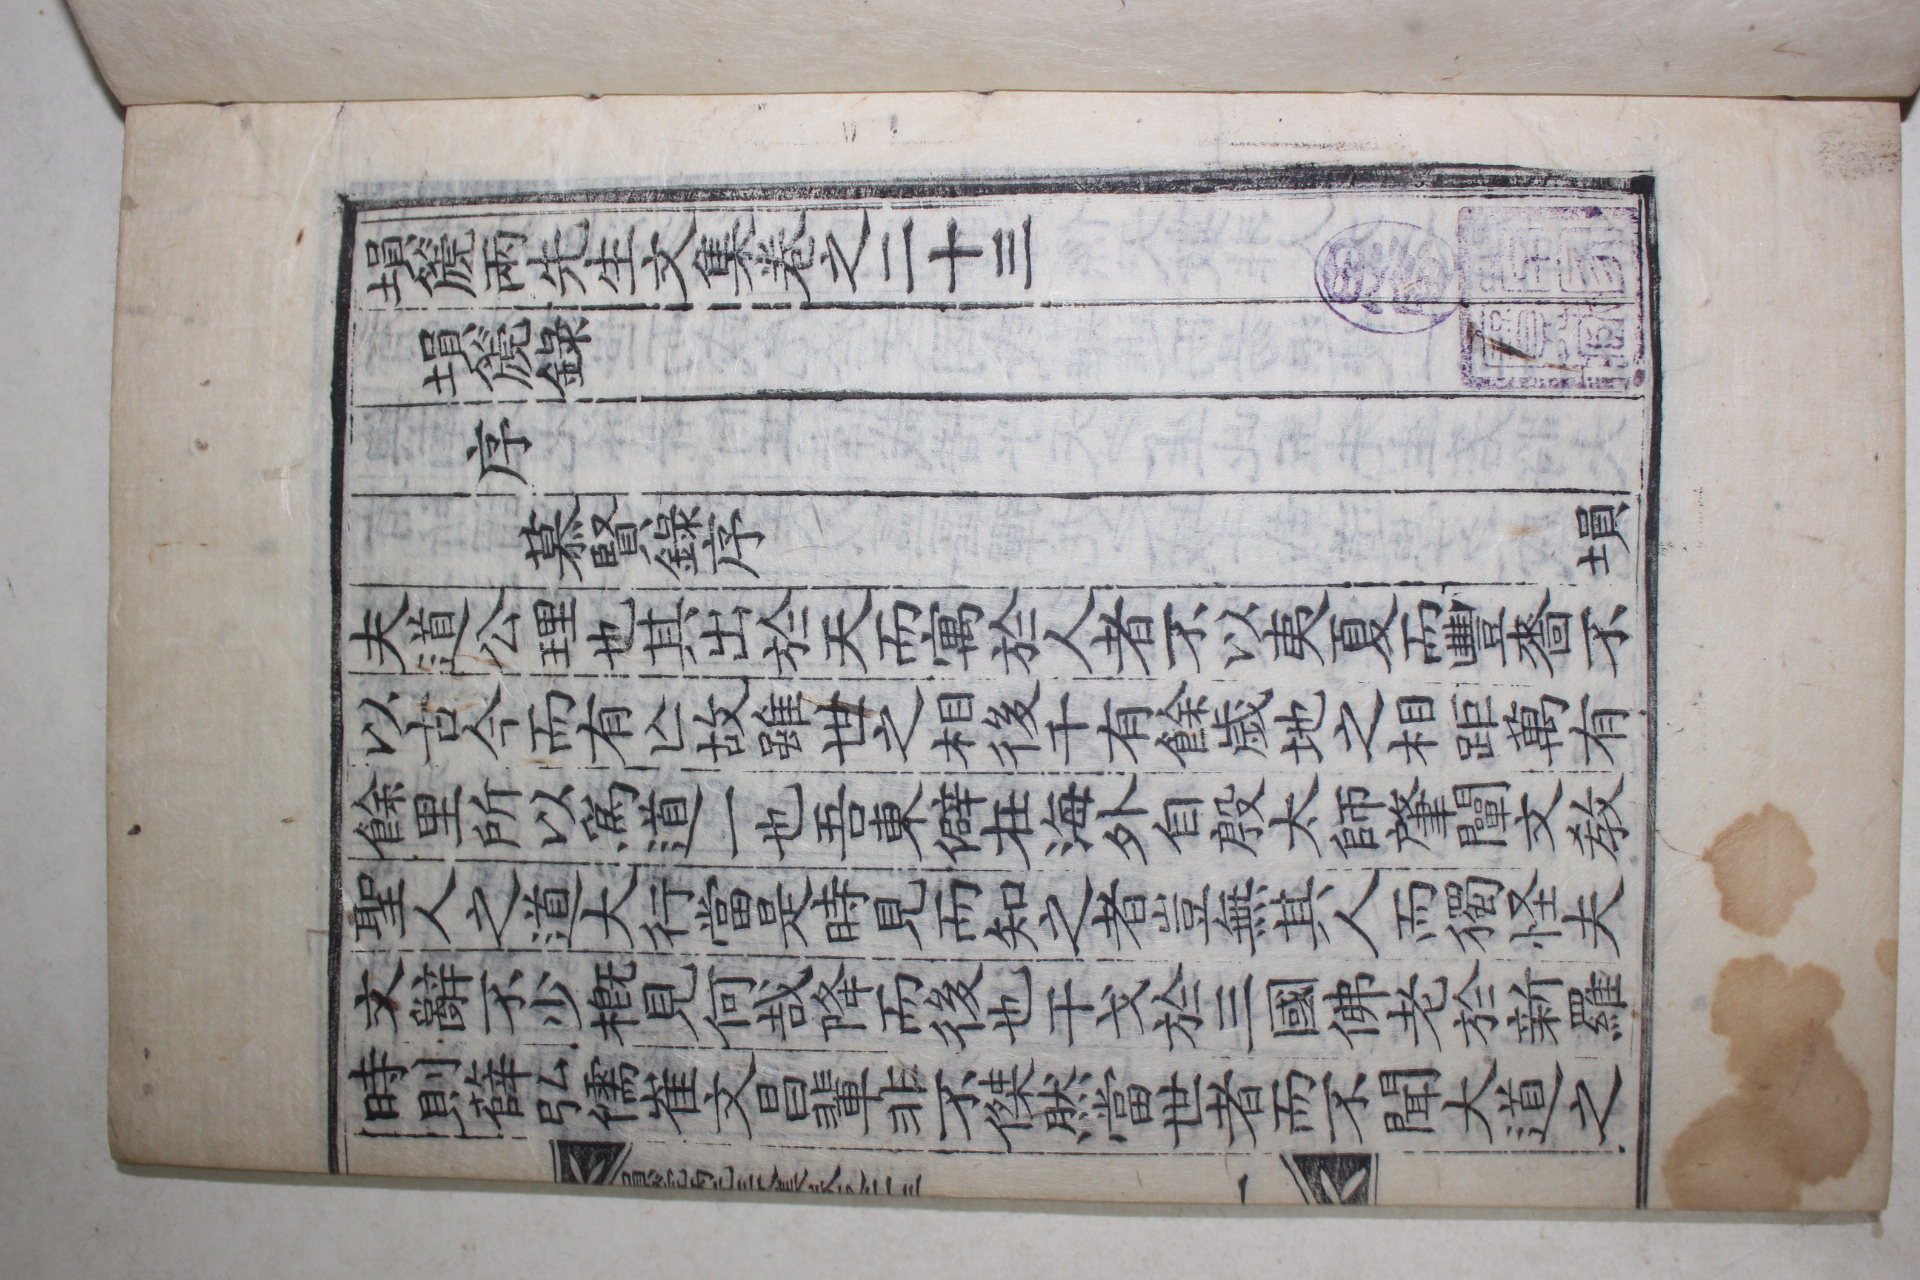 塤篪兩先生文集卷之二十三
塤篪錄
序
慕賢錄序 塤
夫道公理也其出於天而寓於人者不以夷夏而豐嗇不
以古今而有亡故雖世之相後千有餘歲地之相距萬有
餘里所以爲道一也吾東僻在海外自殷太師肇闡文教
聖人之道大行當是時見而知之者豈無其人而獨怪夫
文辭不少槪見何哉降而後也干戈於三國佛老於新羅
時則薛弘儒崔文昌輩非不傑然當世者而不聞大道之
一